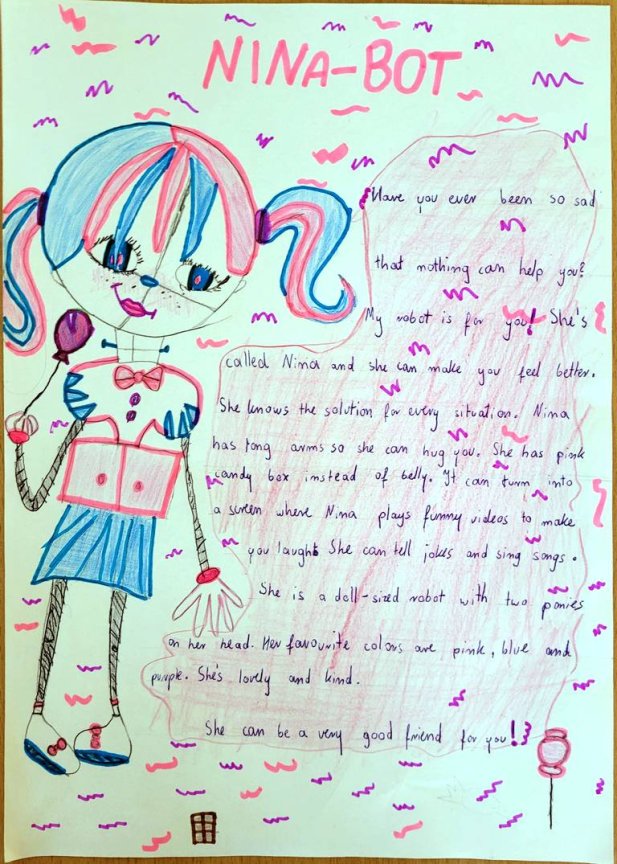 NINA-BOT
Have you ever been so sad
that nothing can help you?
My robot is for you! She's
called Nina and she can make you feel better.
She knows the solution for every situation. Nina
has long arms so she can hug you. She has pink
candy box instead of belly. It can turn into
a screen where Nina plays funny videos to make
you laugh! She can tell jokes and sing songs.
She is a doll-sized robot with two ponies
on her head. Her favourite colors are pink, blue and
purple. She's lovely and kind.
She can be a very good friend for you!